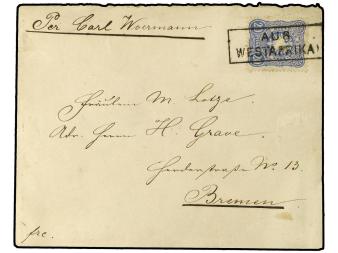 Per Carl Woermann
AUS
WESTAFRIKA
Fräulein M. Lotze.
Adr. Herrn H. Grave.
Herderstraße No. 13.
Bremen
frc.